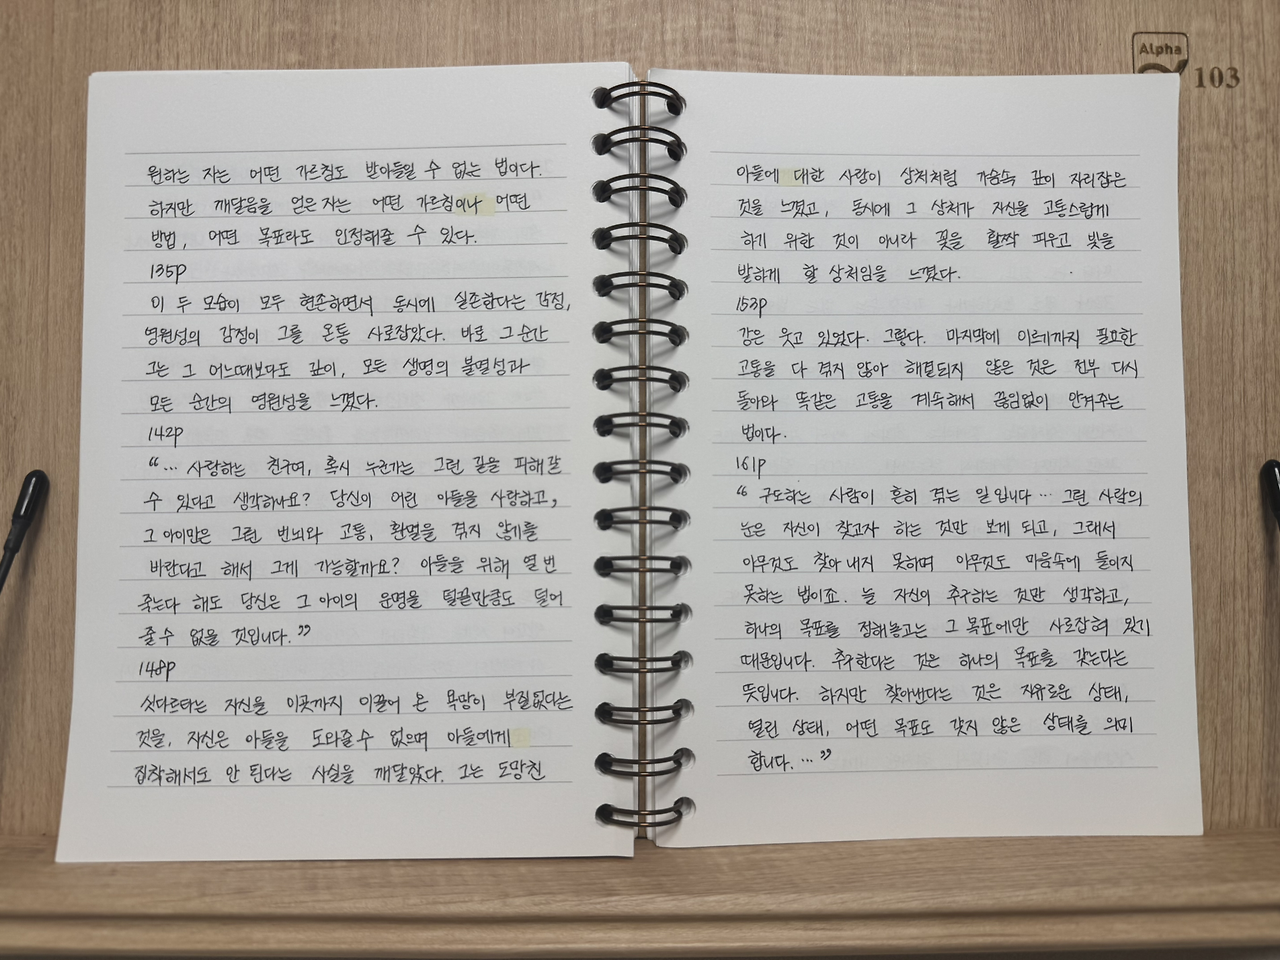 원하는 자는 어떤 가르침도 받아들일 수 없는 법이다.
하지만 깨달음을 얻은 자는 어떤 가르침이나 어떤
방법, 어떤 목표라도 인정해줄 수 있다.
135p
이 두 모습이 모두 현존하면서 동시에 실존한다는 감정,
영원성의 감정이 그를 온통 사로잡았다. 바로 그 순간
그는 그 어느때보다도 깊이, 모든 생명의 불멸성과
모든 순간의 영원성을 느꼈다.
142p
“… 사랑하는 친구여, 혹시 누군가는 그런 길을 피해갈
수 있다고 생각하나요? 당신이 어린 아들을 사랑하고,
그 아이만은 그런 번뇌와 고통, 환멸을 겪지 않기를
바란다고 해서 그게 가능할까요? 아들을 위해 열 번
죽는다 해도 당신은 그 아이의 운명을 털끝만큼도 덜어
줄 수 없을 것입니다.”
148p
싯다르타는 자신을 이곳까지 이끌어 온 욕망이 부질없다는
것을, 자신은 아들을 도와줄 수 없으며 아들에게
집착해서도 안 된다는 사실을 깨달았다. 그는 도망친
아들에 대한 사랑이 상처처럼 가슴속 깊이 자리잡은
것을 느꼈고, 동시에 그 상처가 자신을 고통스럽게
하기 위한 것이 아니라 꽃을 활짝 피우고 빛을
발하게 할 상처임을 느꼈다.
153p
강은 웃고 있었다. 그렇다. 마지막에 이르기까지 필요한
고통을 다 겪지 않아 해결되지 않은 것은 전부 다시
돌아와 똑같은 고통을 계속해서 끊임없이 안겨주는
법이다.
161p
“구도하는 사람이 흔히 겪는 일입니다… 그런 사람의
눈은 자신이 찾고자 하는 것만 보게 되고, 그래서
아무것도 찾아 내지 못하며 아무것도 마음속에 들이지
못하는 법이죠. 늘 자신이 추구하는 것만 생각하고,
하나의 목표를 정해놓고는 그 목표에만 사로잡혀 있기
때문입니다. 추구한다는 것은 하나의 목표를 갖는다는
뜻입니다. 하지만 찾아낸다는 것은 자유로운 상태,
열린 상태, 어떤 목표도 갖지 않은 상태를 의미
합니다. …”
Alpha
103